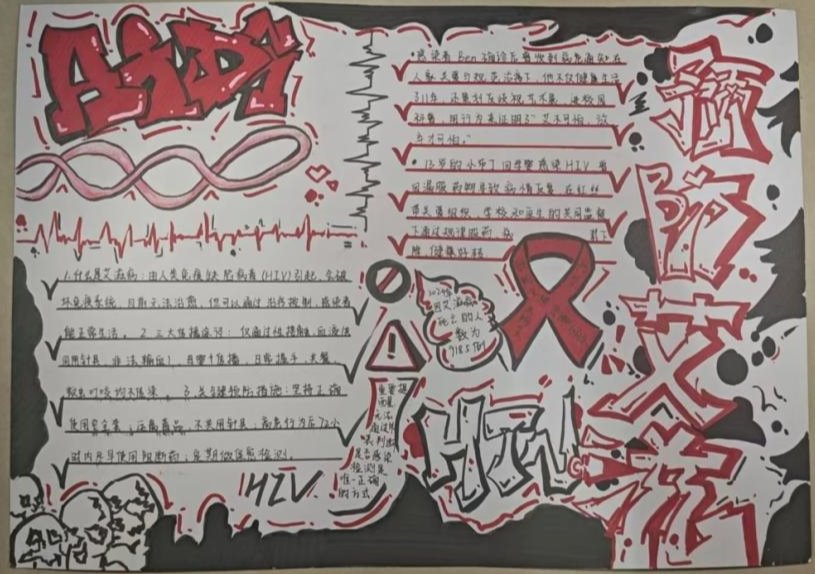 AIDS
感染者 Ben 确诊后曾收到病危通知 在
人家关爱与规范治疗下，他不仅健康生活
11年，还
行为来证明了"艾不可怕，
才可怕。"
13岁的小 因母婴感染HIV 曾
因漏服药物导致病情反复 在红丝
带关爱组织、学校和医生的共同
下通过规律服药
健康好转
预
防
艾
滋
1.什么是艾滋病：由人类免疫缺陷病毒(HIV)引起，会破
坏免疫系统，目前无法治愈，但可以通过治疗控制，感染者
能正常生活。2.三大传播途径：仅通过性接触、血液(共
用针具、非法输血)、母婴传播，日常握手、共餐
蚊虫叮咬均不传染。3.关键预防措施：坚持正确
使用安全套，远离毒品，不共用针具，高危行为后72小
时内尽早使用阻断药，定期做
检测。
HIV
2024年
因艾滋病
死亡的人
数为
重要提
而是
无法
通过外
表判断
是否感染
检测是
唯一正确
的方式